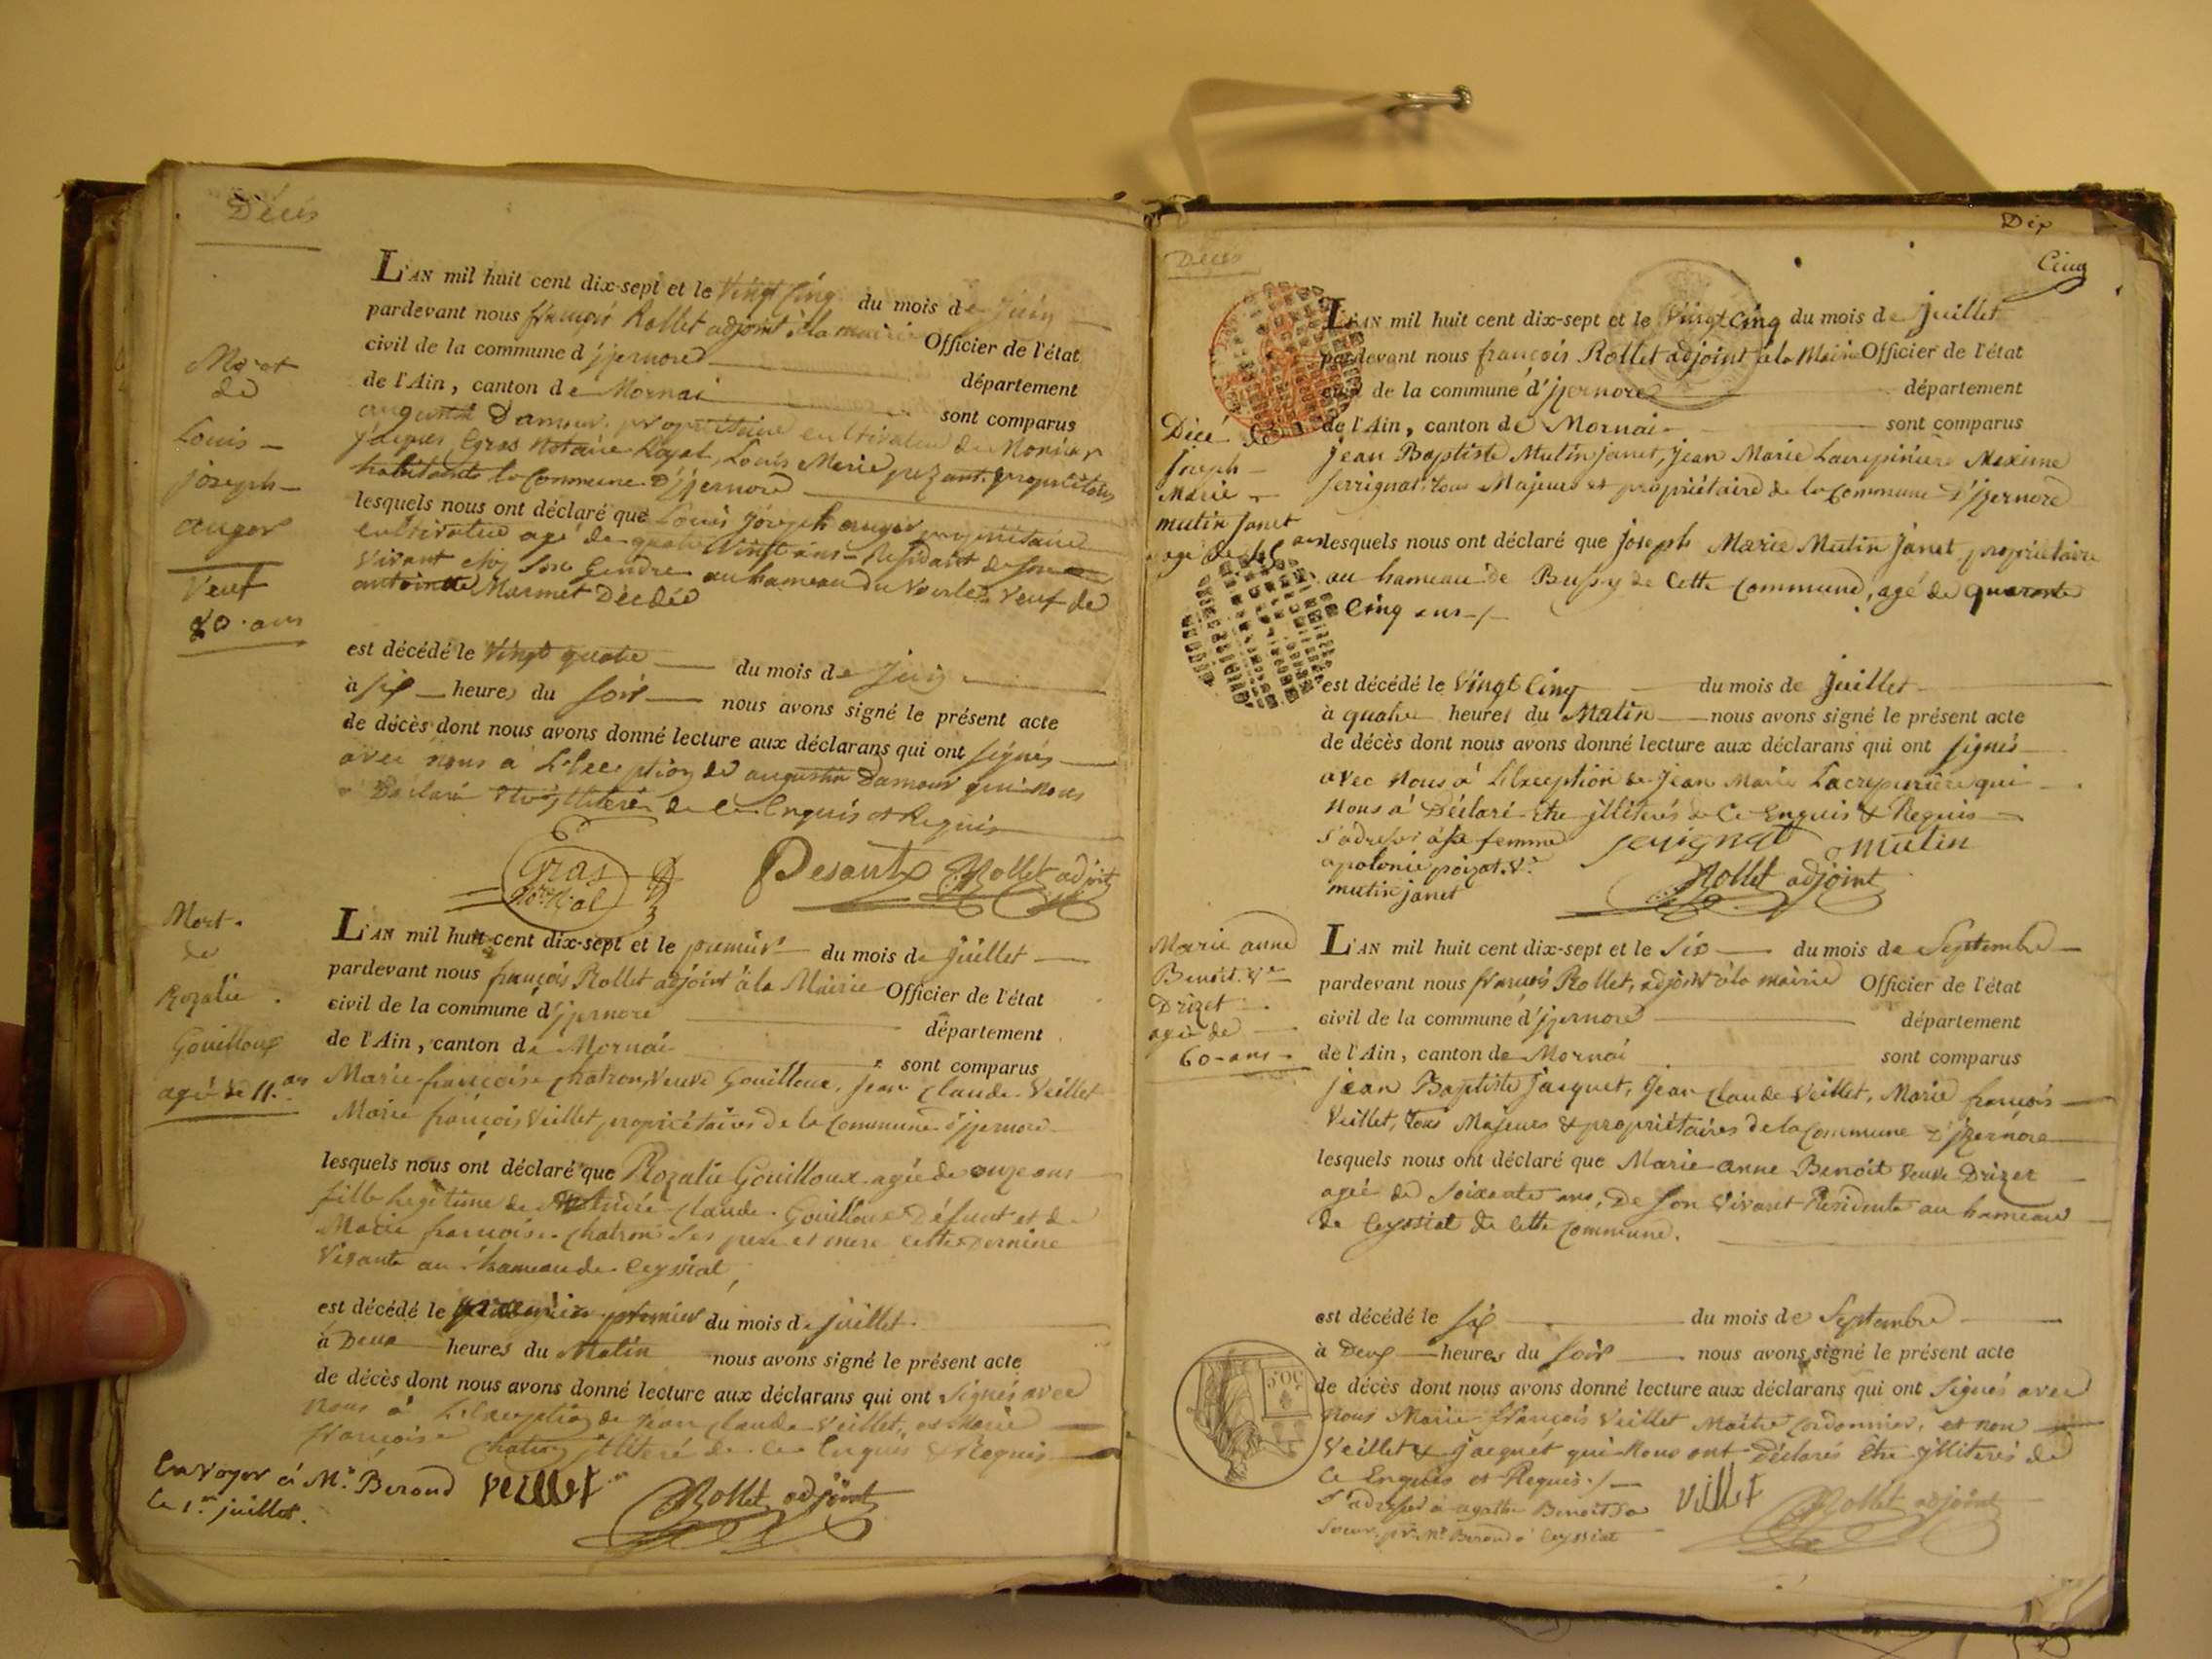 Décès
Mort
de
Louis –
joseph –
auger
Veuf
80 ans
L'AN mil huit cent dix-sept et le Vingt Cinq du mois de Juin
pardevant nous françois Rollet adjoint à la mairie Officier de l'état
civil de la commune d'jzernore département
de l'Ain, canton de Mornai sont comparus
augustin Damour propriétaire cultivateur de
jacques Gras Notaire Royal, Louis Marie propriétaires
habitants la Commune D'jzernore
lesquels nous ont déclaré que Louis joseph auger propriétaire
cultivateur agé de quatre Vingt ans – Résidant de son
Vivant chez son Gendre au hameau du Voerle, Veuf de
antoinette Marmet Décédée
est décédé le Vingt quatre du mois de Juin
à six heures du soir nous avons signé le présent acte
de décès dont nous avons donné lecture aux déclarans qui ont signés
avec nous à L'Exception de augustin Damour qui nous
a Déclaré être jlliteré de ce Enquis et Requis
Gras
Desants Rollet adjoint
Mort.
de
Rozalie
Gouilloux
agé de 11. ans
L'AN mil huit cent dix-sept et le premier du mois de juillet
pardevant nous françois Rollet adjoint à la Mairie Officier de l'état
civil de la commune d'jzernore département
de l'Ain, canton de Mornai sont comparus
Marie françoise Chatron, Veuve Gouilloux, jean Claude Veillet
Marie françois Veillet, propriétaires de la Commune d'jzernore
lesquels nous ont déclaré que Rozalie Gouilloux agée de onze ans
fille Legitime de André Claude Gouilloux Défunt et de
Marie françoise Chatron ses pere et mere cette Derniere
Vivante au hameau de Ceyssiat,
est décédé le premier du mois de juillet
à Deux heures du Matin nous avons signé le présent acte
de décès dont nous avons donné lecture aux déclarans qui ont signés avec
nous à L'Exception de jean Claude Veillet, et Marie
françoise Chatron jlliteré de ce Enquis & Requis
Envoyer à Mr. Beroud
le 1er juillet.
Veillet
Rollet adjoint
Dix
Cinq
Décès
Décé de
Joseph –
Marie –
mutin Janet
agé de 45 ans
L'AN mil huit cent dix-sept et le Vingt Cinq du mois de juillet
pardevant nous françois Rollet adjoint à la Mairie Officier de l'état
civil de la commune d'jzernore département
de l'Ain, canton de Mornai sont comparus
Jean Baptiste Mutin janet, jean Marie Lacrepinière Maxime
serrignat, tous Majeurs et propriétaire de la Commune D'jzernore
lesquels nous ont déclaré que joseph Marie Mutin Janet propriétaire
au hameau de Bussy de Cette Commune, agé de quarante
Cinq ans
est décédé le Vingt Cinq du mois de juillet
à quatre heures du Matin nous avons signé le présent acte
de décès dont nous avons donné lecture aux déclarans qui ont signés
avec nous à L'Exception de jean Marie Lacrepinière qui
nous à Déclaré être jlliterés de Ce Enquis & Requis
s'adresser à sa femme
apolonie poizat Ve
mutin janet
serrignat mutin
Rollet adjoint
Marie anne
Benoit Ve
Drizet
agée de
60 ans
L'AN mil huit cent dix-sept et le Six du mois de Septembre
pardevant nous françois Rollet, adjoint à la mairie Officier de l'état
civil de la commune d'jzernore département
de l'Ain, canton de Mornai sont comparus
jean Baptiste Jacquet, jean Claude Veillet, Marie françois
Veillet, tous Majeurs & propriétaires de la Commune D'jzernore
lesquels nous ont déclaré que Marie anne Benoit Veuve Drizet
agée de Soixante ans, De son Vivant Residente au hameau
de Ceyssiat de Cette Commune.
est décédé le Six du mois de Septembre
à Deux heures du soir nous avons signé le présent acte
de décès dont nous avons donné lecture aux déclarans qui ont signés avec
nous Marie françois Veillet Maitre Cordonnier, et non
Veillet & jacquet qui nous ont Déclarés être jlliterés de
Ce Enquis et Requis.
s'adresser à agathe Benoit sa
soeur pr. Mr Beroud à Ceyssiat
Veillet
Rollet adjoint
50C